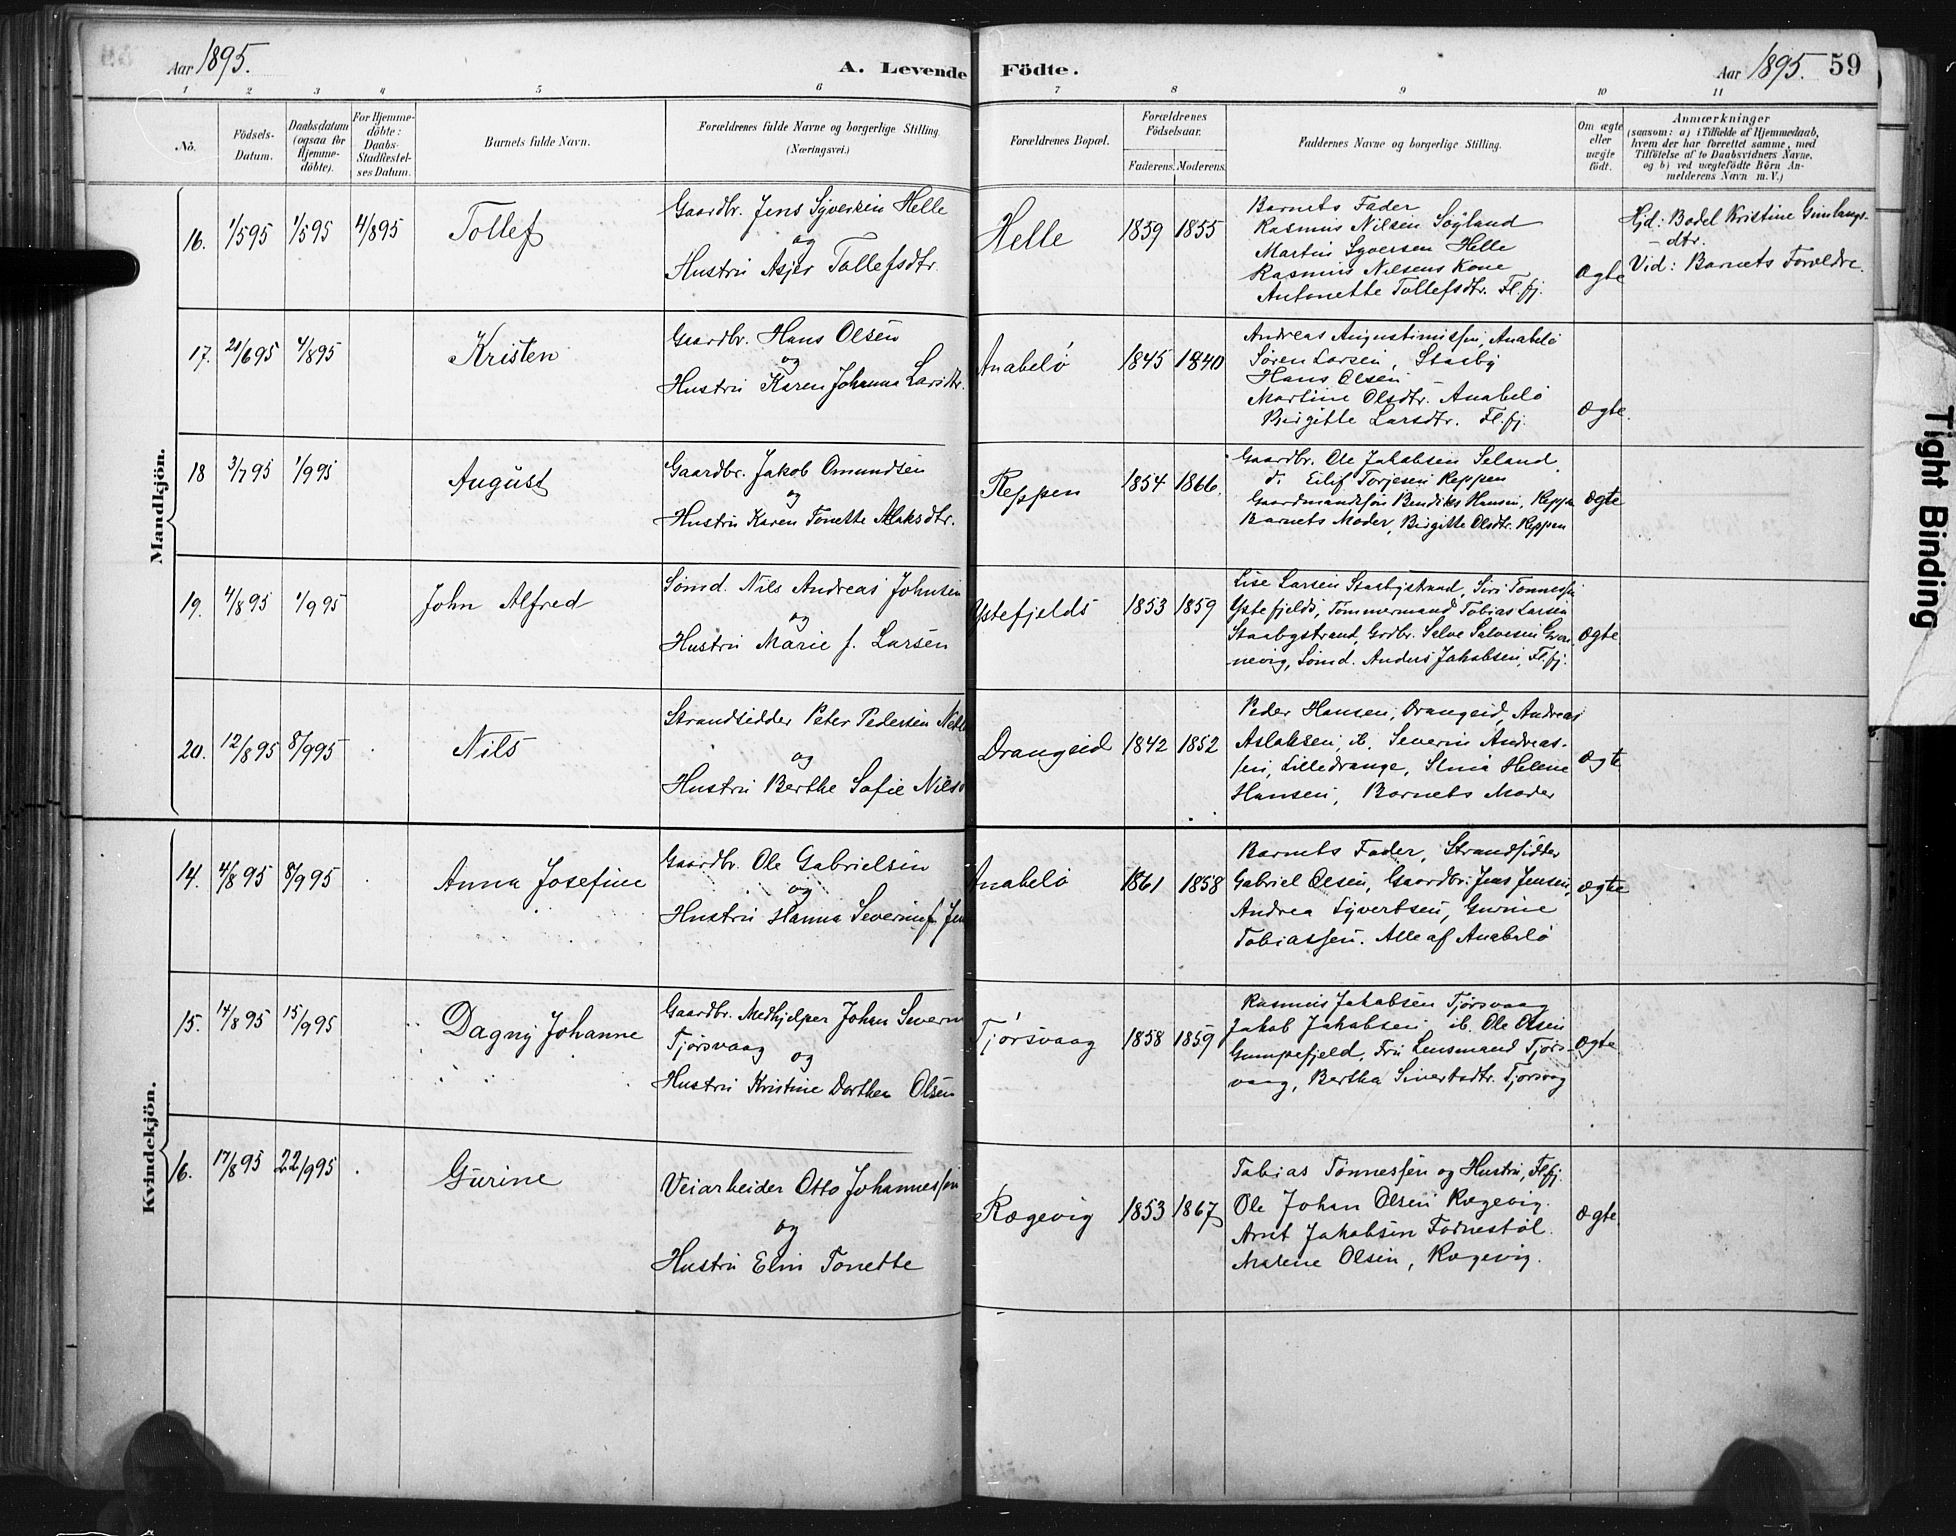 Aar 1895.
A. Levende Födte.
Aar 1895. 59
1 2 3 4 5 6 7 8 9 10 11
No.
Födsels-Datum.
Daabsdatum (ogsaa for Hjemme-döbte).
For Hjemme-döbte: Daabs-Stadfæstel-ses Datum.
Barnets fulde Navn.
Forældrenes fulde Navne og borgerlige Stilling. (Næringsvei.)
Forældrenes Bopæl.
Forældrenes Födselsaar.
Faderens. Moderens.
Faddernes Navne og borgerlige Stilling.
Om ægte eller uægte födt.
Anmærkninger
(saasom: a) i Tilfælde af Hjemmedaab,
hvem der har forrettet samme, med
Tilföielse af to Daabsvidners Navne,
og b) ved uægtefödte Börn An-
melderens Navn m. V.)
Mandkjön.
16. 1/5 95 1/5 95 4/8 95 Tollef
Gaardbr. Jens Syversen Helle
og
Hustru Asjer Tollefsdtr.
Helle 1859 1855
Barnets Fader
Rasmus Nilsen Søyland
Martin Syversen Helle
Rasmus Nilsens Kone
Antonette Tollefsdtr. Fl.fj.
Ægte
Hjd: Bodel Kristine
-dtr.
Vid: Barnets Forældre.
17. 21/6 95 4/8 95 Kristen
Gaardbr. Hans Olsen
og
Hustru Karen Johanna Larsdtr.
Anabelø 1845 1840
Andreas Augustinussen, Anabelø
Søren Larsen, Stasby
Hans Olsen
Martine Olsdtr. Anabelø
Birgitte Larsdtr. Fl.fj.
Ægte.
18 3/7 95 1/9 95 August
Gaardbr. Jakob Omundsen
og
Hustru Karen Tonette Aslaksdtr.
Reppen 1854 1866.
Gaardbr. Ole Jakobsen Seland
d. Eilif Torjesen Reppen
Gaardmandssøn Bendiks Hansen, Reppen
Barnets Moder, Birgitte Olsdtr. Reppen
Ægte
19. 4/8 95 1/9 95 John Alfred
Sømd. Nils Andreas Johnsen
og
Hustru Marie f. Larsen
Ystefjelds 1853 1859
Lise Larsen Stasbystrand, Siri Tønnessen
Ystefjelds, Tømmermand Tobias Larsen
Staabystrand, Grdbr. Salve Salvesen
-nevig, Sømd. Anders Jakobsen, Fl.fj.
Ægte
20. 12/8 95 8/9 95 Nils
Strandsidder Peter Pedersen
og
Hustru Berthe Sofie
Drangeid 1842 1852
Peder Hansen, Drangeid, Andreas
Aslaksen, ib. Severin Andreas-
sen, Lilledrange, Helene
Hansen, Barnets Moder
Ægte
Kvindekjön.
14. 4/8 95 8/9 95 Anna Josefine
Gaardbr. Ole Gabrielsen
og
Hustru Hanna Severine f.
Anabelø 1861 1858
Barnets Fader, Strandsidder
Gabriel Olsen, Gaardbr. Jens Jensen,
Andrea Syvertsen, Gurine
Tobiassen. Alle af Anabelø
Ægte
15. 14/8 95 15/9 95 Dagny Johanne
Gaardbr. Medhjelper Johan
Tjørsvaag og
Hustru Kristine Dorthea Olsen
Tjørsvaag 1858 1859
Rasmus Jakobsen Tjørsvaag
Jakob Jakobsen ib. Ole Olsen
Gumpefjeld, Fru Lensmand Tjørs-
vaag, Bertha Sivertsdtr. Tjørsvag
Ægte
16. 17/8 95 22/9 95 Gurine
Veiarbeider Otto Johannessen
og
Hustru Elen Tonette
Rægevig 1853 1867
Tobias Tønnessen og Hustru, Fl.fj.
Ole Johan Olsen Rægevig.
Arnt Jakobsen Fodnestøl.
Malene Olsen, Rægevig.
Ægte
Tight Binding